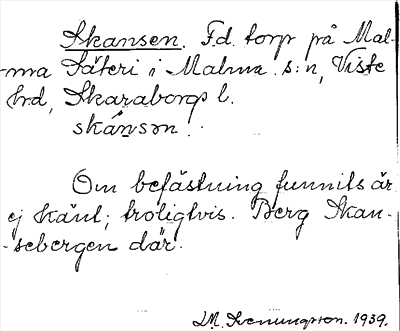 Skansen. F.d. torp på Mal-
-ma Säteri i Malma s:n, Viste
hrd, Skaraborgs l.
skánsən.
Om befästning funnits är
ej känt; troligtvis. Berg Skan-
-sebergen där.
1939.